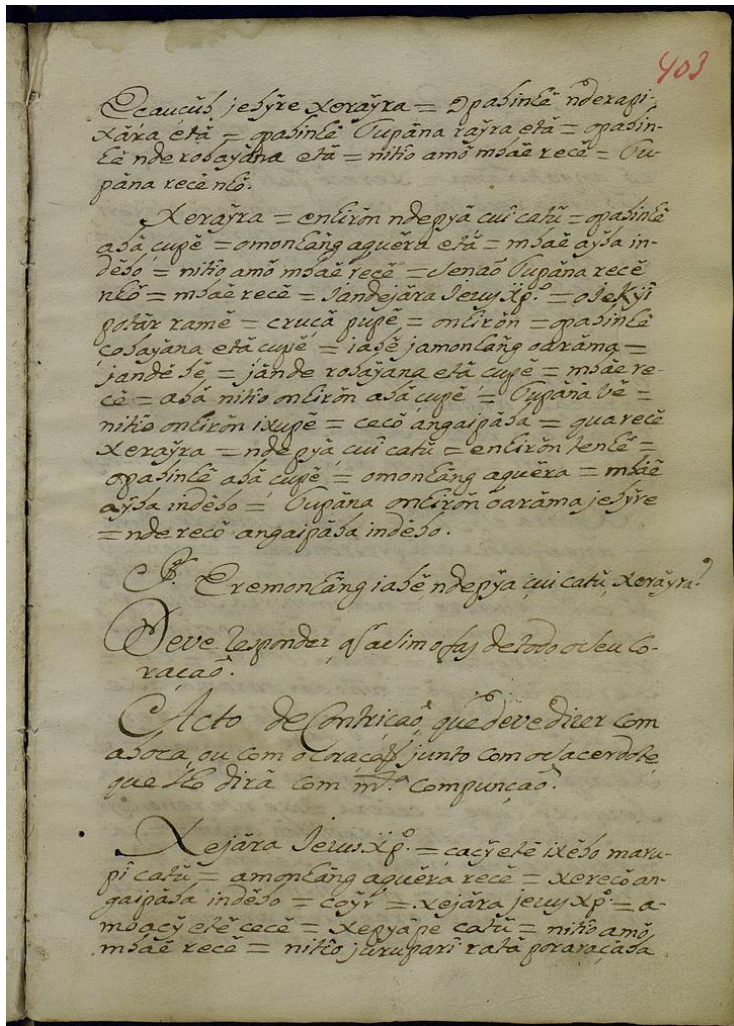 403
Ecaucúb jebÿre xeraÿra = Opabinhẽ nderapi-
xára etã = opabinhẽ Tupána raÿra etã = opabin-
hẽ nde robaÿána etã = nitío amõ mbaẽ recẽ = Tu-
pána recẽ nhõ.
Xeraÿra = enhirõn ndepÿá cuî catũ = opabinhẽ
abã çupẽ = omonhãng aguẽra etã = mbaẽ aÿba in-
dẽbo = nitío amõ mbaẽ recẽ = senaõ Tupána recẽ
nhõ = mbaẽ recẽ = Jandejára Jesus Xp.º = ojekÿî
potár ramẽ = cruçá pupẽ = onhirõn = opabinhẽ
çobaÿana etá çupẽ = iabẽ jamonhãng oarãma =
jandẽ bẽ = jánde robaÿana etá çupẽ = mbaẽ re-
cẽ = abá nitío onhirõn abá çupẽ = Tupána bẽ =
nitío onhirõn ixupẽ = cecõ angaipába = qua recẽ
xeraÿra = ndepÿá çuî catũ = enhirõn tenhẽ =
opabinhẽ abá çupẽ = omonhãng aguẽra = mbaẽ
aÿba indẽbo = Tupána onhirõn oarãma jebÿre
= nde recõ angaipába indẽbo.
P. Eremonhãng iabẽ, ndepÿa çui catũ, xeraÿra?
Deve responder, q̃ asim o fas de todo o seu Co-
raçaõ.
Acto de Contriçaõ, que deve dizer com
a boca, ou com o Coraçaõ, junto com o sacerdote,
que lho dirá com m.ta compunçaõ.
Xejára Jesus Xp.º = caçÿ etẽ ixẽbo maru-
pî catũ = amonhãng aguẽra recẽ = xerecõ an-
gaipába indẽbo = coÿr = xejára jesus Xp.º = a-
mbaçÿ etẽ cecẽ = xepÿápe catũ = nitío amõ
mbaẽ recẽ = nitío jurupari ratá poraraçaba